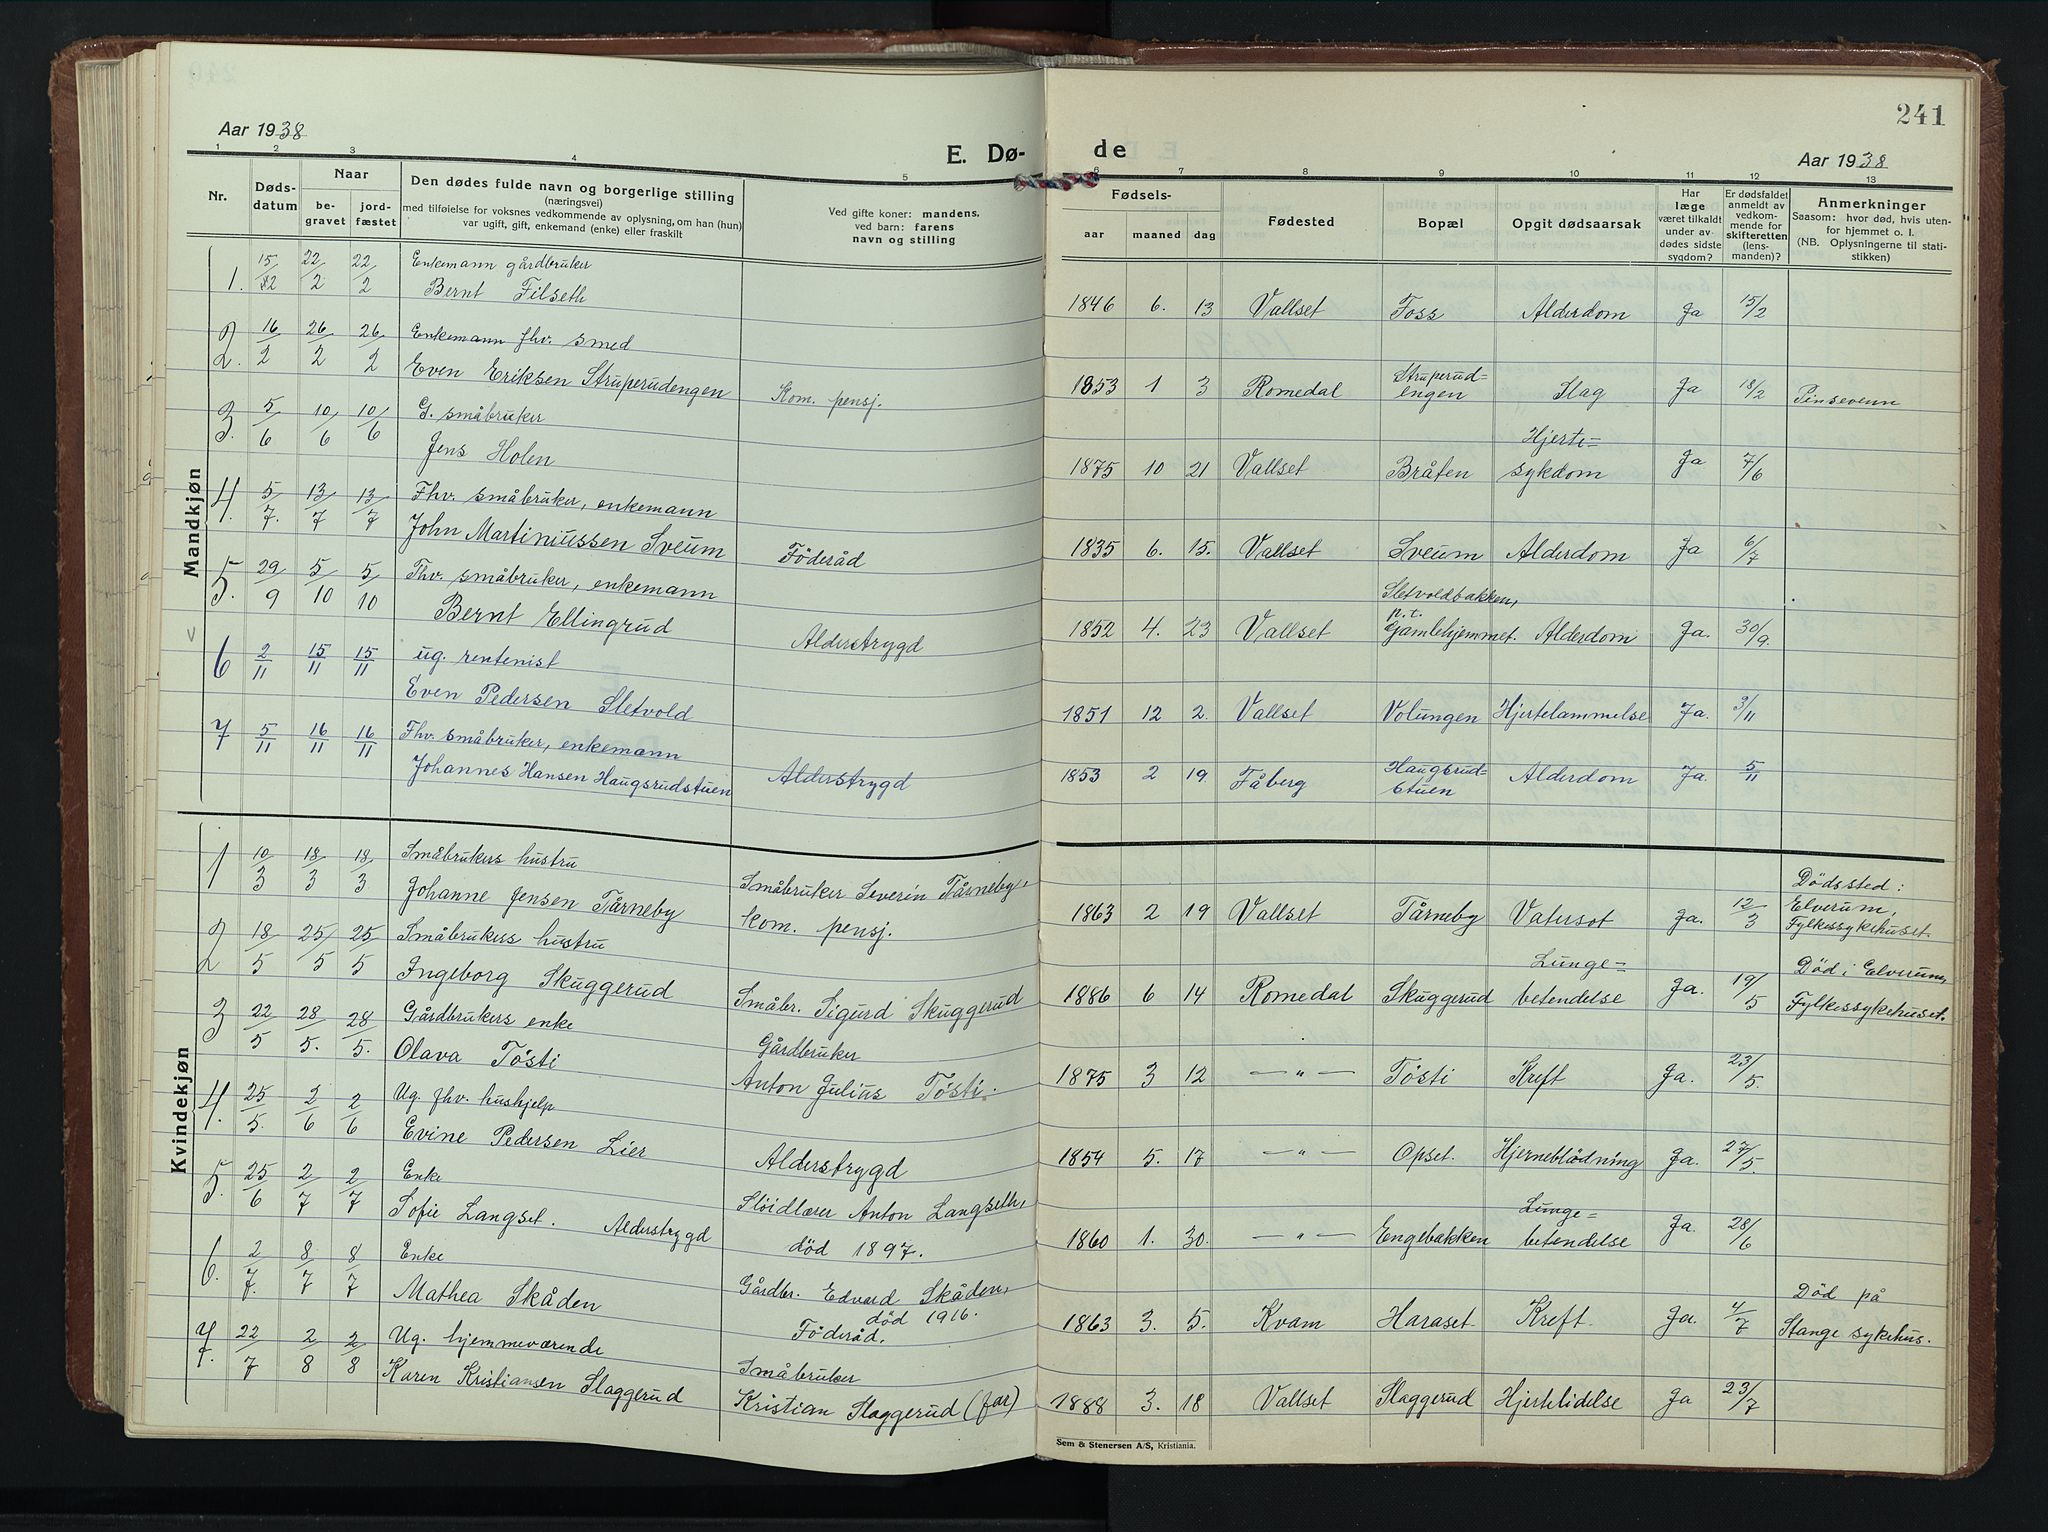 241
Aar 1938
E. Dø-
de
Aar 1938
1 2 3 4 5 6 7 8 9 10 11 12 13
Nr.
Døds-
datum
Naar
be-
gravet
jord-
fæstet
Den dødes fulde navn og borgerlige stilling
(næringsvei)
med tilføielse for voksnes vedkommende av oplysning, om han (hun)
var ugift, gift, enkemand (enke) eller fraskilt
Ved gifte koner: mandens,
ved barn: farens
navn og stilling
Fødsels-
aar maaned dag
Fødested
Bopæl
Opgit dødsaarsak
Har
læge
været tilkaldt
under av-
dødes sidste
sygdom?
Er dødsfaldet
anmeldt av
vedkom-
mende for
skifteretten
(lens-
manden)?
Anmerkninger
Saasom: hvor død, hvis uten-
for hjemmet o. l.
(NB. Oplysningerne til stati-
stikken)
Mandkjøn
1. 15/2 22/2 22/2 Enkemann gårdbruker
Bernt Filseth 1846 6. 13 Vallset Foss Alderdom Ja 15/2
2. 16/2 26/2 26/2 Enkemann fhv. smed
Even Eriksen Struperudengen Kom. pensj. 1853 1 3 Romedal Struperud-
engen Slag Ja 18/2 Pinsevenn
3. 5/6 10/6 10/6 G. småbruker
Jens Holen 1875 10 21 Vallset Bråten Hjerte-
sykdom Ja 7/6
4. 5/7. 13/7 13/7 Fhv. småbruker, enkemann
John Martiniussen Sveum Föderåd 1835 6. 15. Vallset Sveum Alderdom Ja 6/7
5. 29/9 5/10 5/10 Fhv. småbruker, enkemann
Bernt Ellingrud Alderstrygd 1852 4. 23 Vallset Sletvoldbakken,
p.t.
Gamlehjemmet. Alderdom Ja. 30/9.
6 2/11 15/11 15/11 ug. rentenist
Even Pedersen Sletvold 1851 12 2. Vallset Volungen Hjertelammelse Ja. 3/11
7 5/11 16/11 16/11 Fhv. småbruker, enkemann
Johannes Hansen Haugsrudstuen Alderstrygd 1853 2 19. Fåberg Haugsrud-
stuen Alderdom Ja. 5/11
Kvindekjøn
1 10/3 18/3 18/3 Småbrukers hustru
Johanne Jensen Tårneby Småbruker Severin Tårneby.
kom. pensj. 1863 2 19 Vallset Tårneby Vatersot Ja. 12/3 Dödssted:
Elverum,
Fylkessykehuset.
2 18/5 25/5 25/5 Småbrukers hustru
Ingeborg Skuggerud Småbr. Sigurd Skuggerud 1886 6 14 Romedal Skuggerud Lunge-
betendelse Ja. 19/5 Död i Elverum,
Fylkessykehuset.
3 22/5 28/5. 28/5. Gårdbrukers enke
Olava Tösti Gårdbruker
Anton Julius Tösti. 1875 3 12 — " — Tösti Kreft Ja. 23/5.
4. 25/5. 2/6 2/6 Ug. fhv. hushjelp
Evine Pedersen Lier Alderstrygd 1854 5. 17 — " — Opset. Hjerneblödning Ja. 27/5.
5. 25/6 2/7 2/7 Enke
Sofie Langset. Alderstrygd Slöidlærer Anton Langseth,
död 1897. 1860 1. 30. — " — Engebakken Lunge-
betendelse Ja 28/6
6. 2/7. 8/7 8/7 Enke
Mathea Skåden Gårdbr. Edvard Skåden,
död 1916.
Föderåd. 1863 3. 5. Kvam Haraset. Kreft. Ja. 4/7 Död på
Stange sykehus.
7. 22/7 2/8 2/8 Ug. hjemmeværende
Karen Kristiansen Slaggerud Småbruker
Kristian Slaggerud (far) 1888 3. 18 Vallset Slaggerud Hjertelidelse Ja 23/7
Sem & Stenersen A/S, Kristiania.